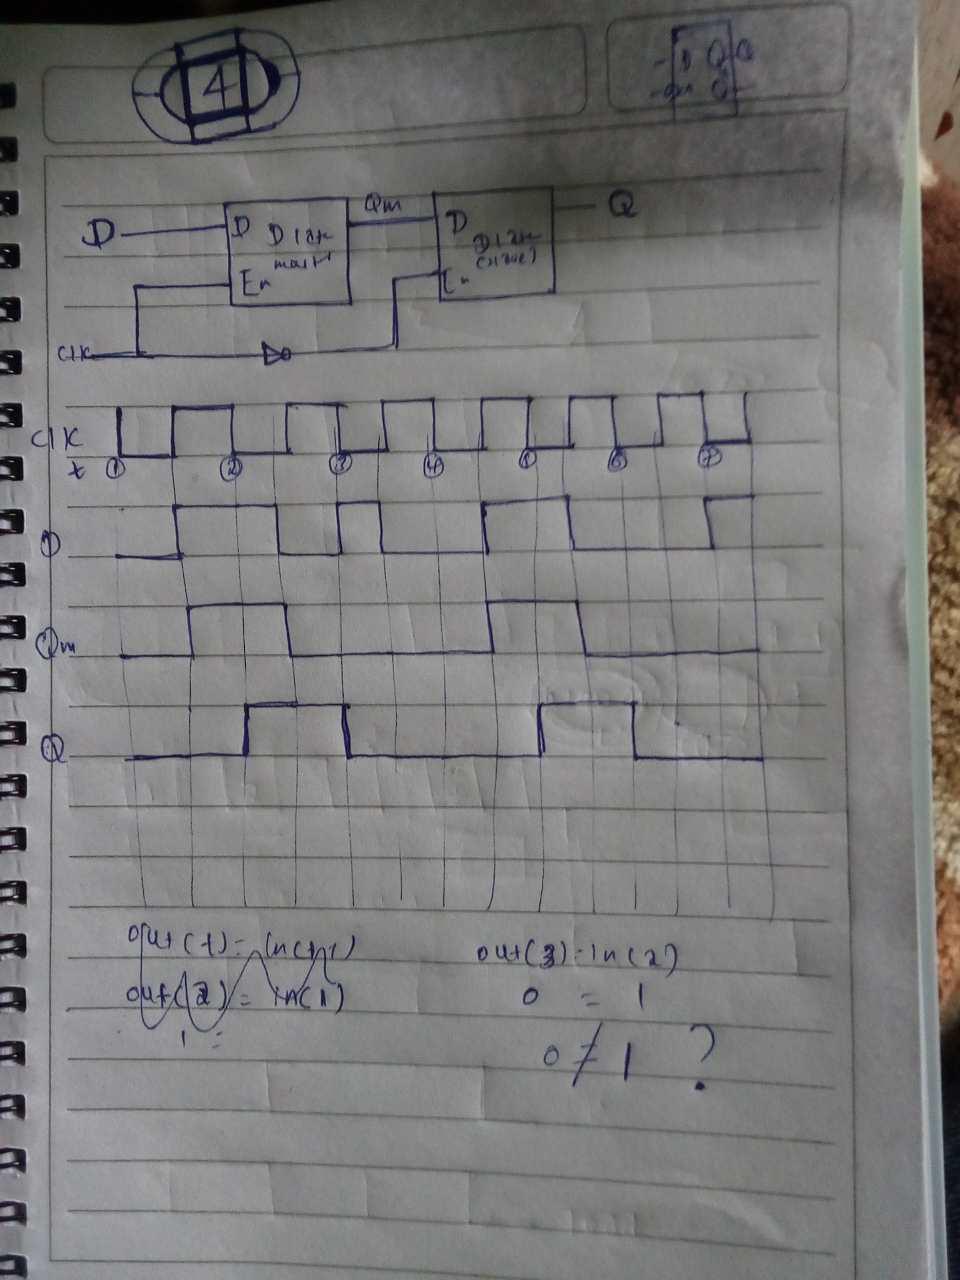 4
D Q Q
En Q
Qm
D D D Q
En
D
En
Clk
CLK
t 1 2 3 4 6 7
D
Qm
Q
out(t) = in(t-1)
out(3) = in(2)
out(2) = in(1)
0 = 1
1 =
0 ≠ 1 ?